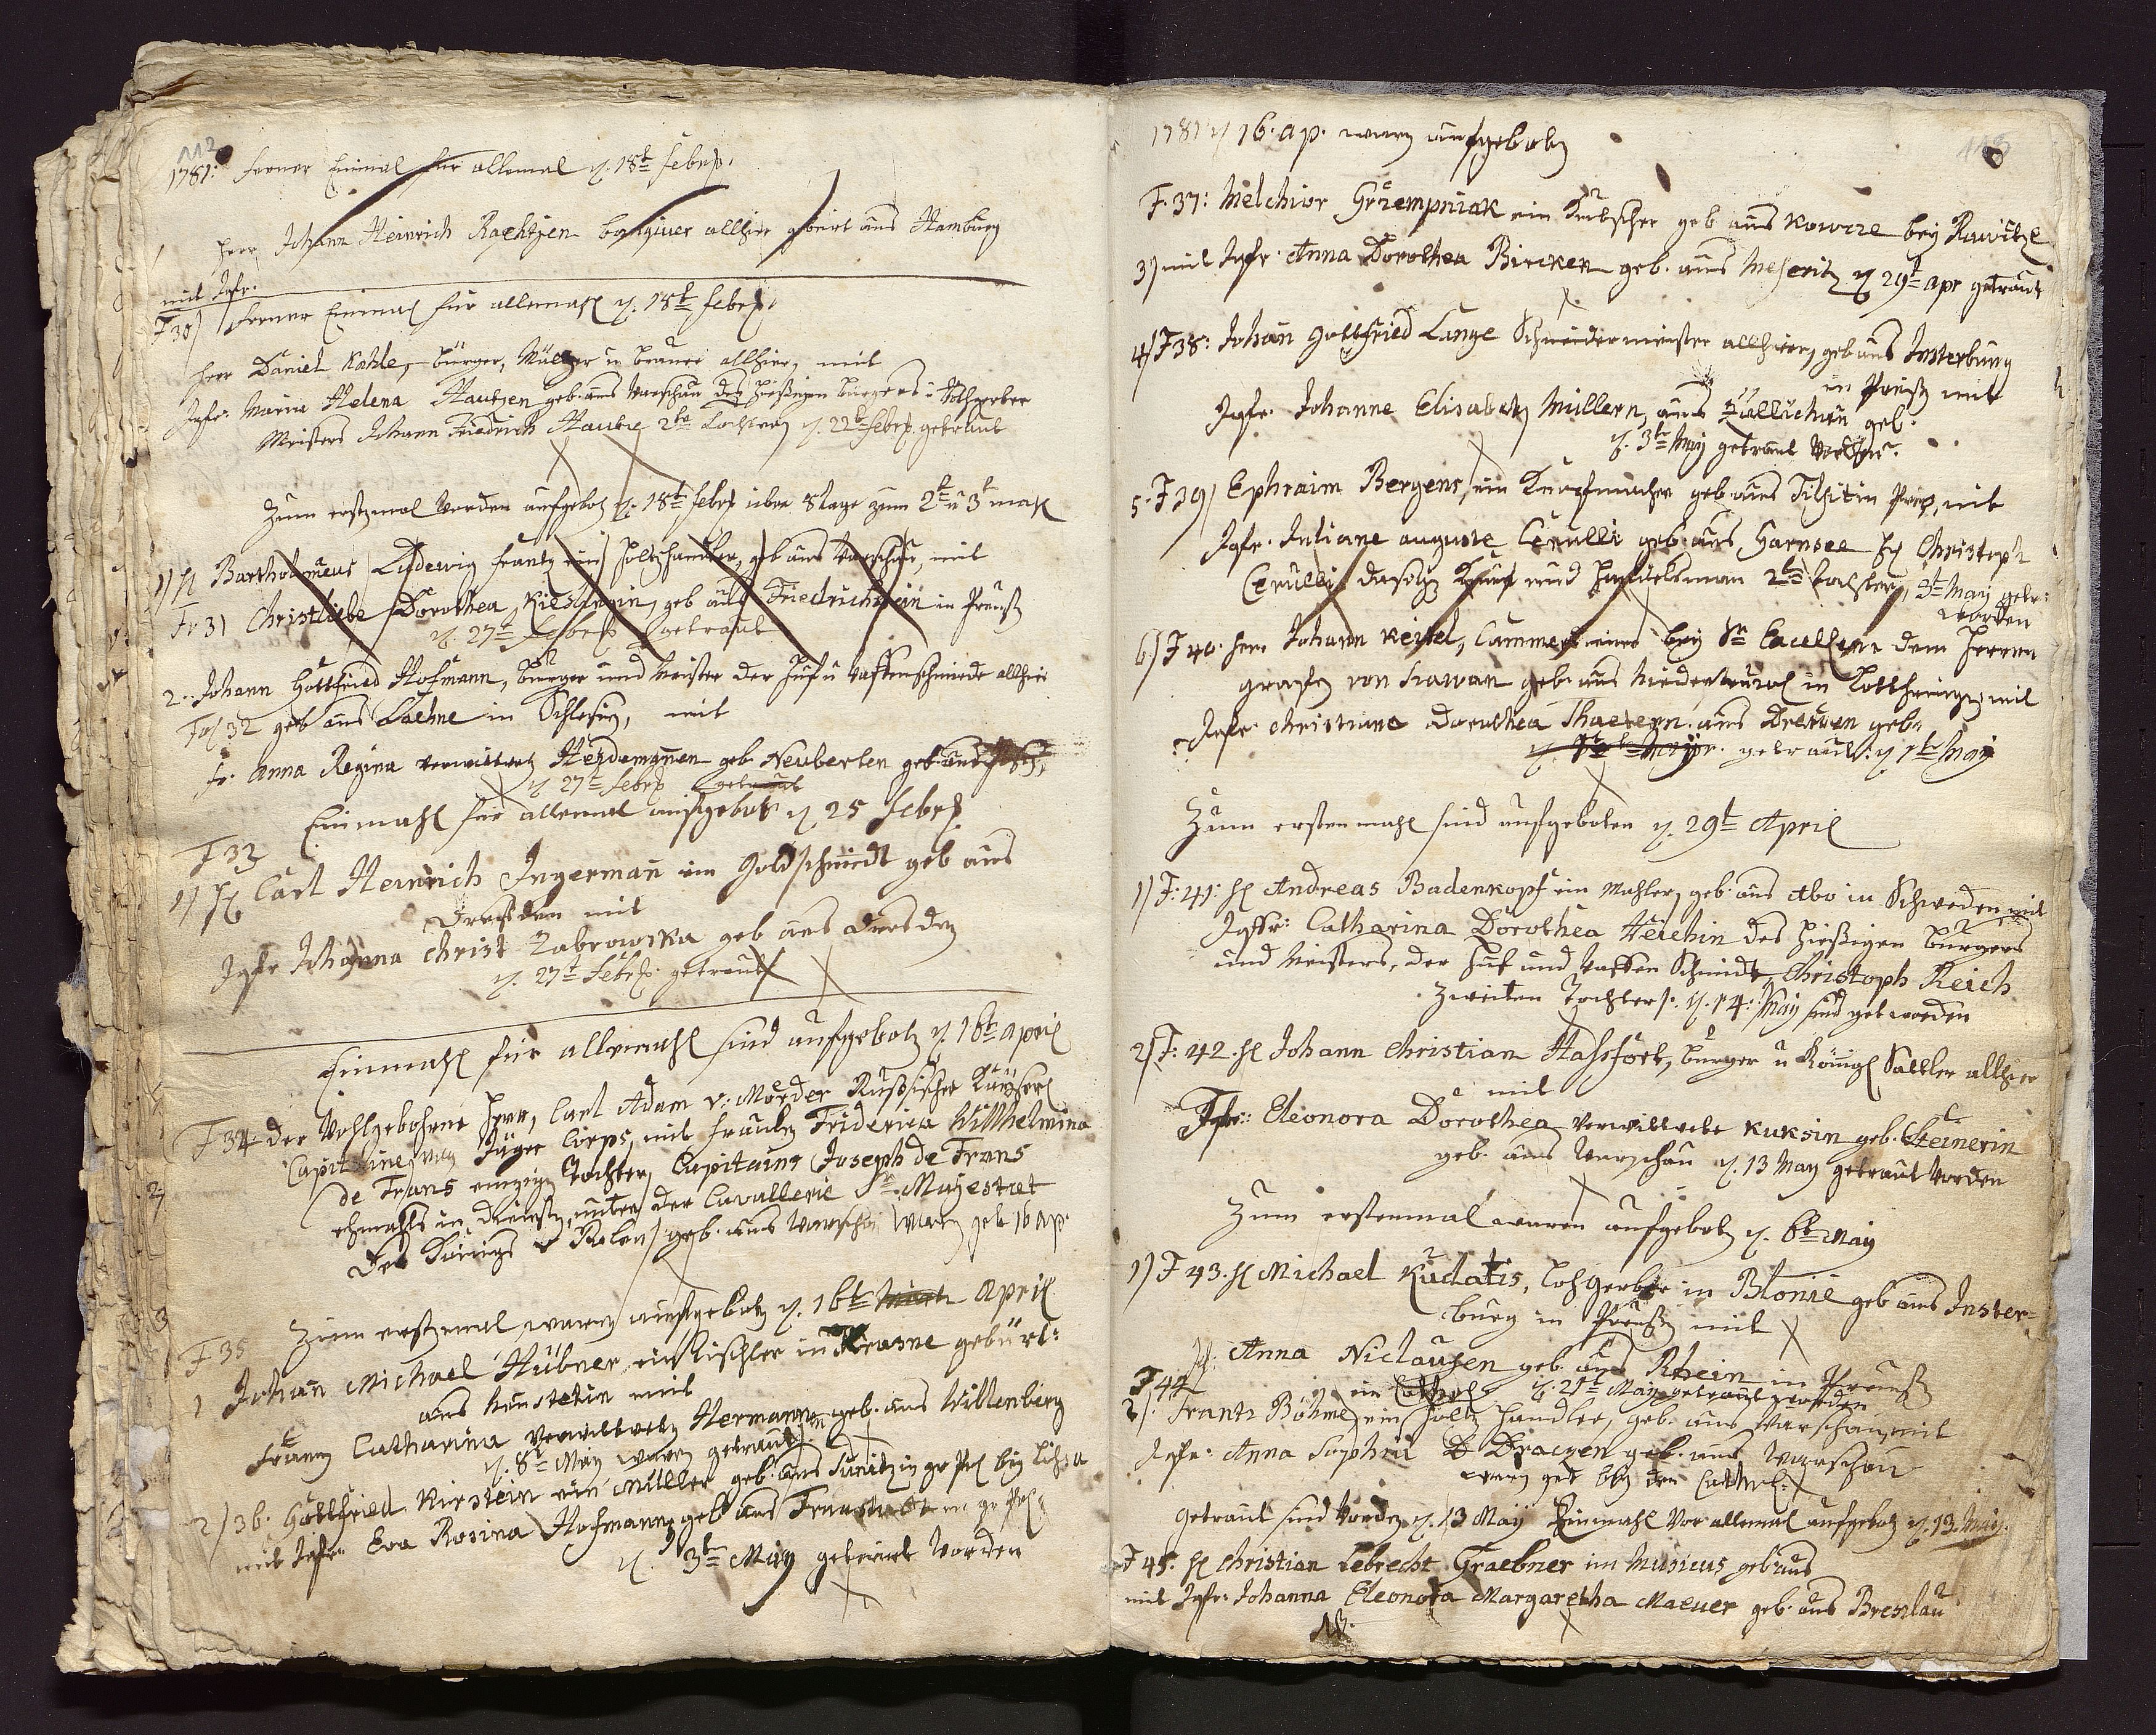 112
1781: ferner Einmal für allemal d. 18t Febr.
Herr Johann Heinrich Raehtjen banquier allhier gebürt aus Hamburg
mit Jgfr.
F 30) ferner Einmal für allemahl d. 18t Febr.
Herr Daniel Kahle, bürger, Müller u brauer allhier, mit
Jgfr: Maria Helena Hautzen geb. aus Warschau des hießigen bürgers u Lohgerber
Meisters Johann Friedrich Hautze 2te Tochter d. 22t Febr. getraut
Zum erstenmal worden aufgeboten d. 18t Febr über 8 tage zum 2t u 3t mahl
1) H Bartholomeus Ludewig Frantz ein Holtzhandler, geb aus Warschau, mit
Fr 31 Christliebe Dorothea, geb aus Friedrichstein in Preuß
d. 27t Febr getraut
2. Johann Gottfried Hofmann, bürger und Meister der Huf u Waffenschmiede allhier
Fol 32 geb aus Laehne in Schlesien, mit
fr. Anna Regina verwittwete Heydemannen geb. Neuberten geb. aus
d 27t Febr getraut
Einmahl für allemal aufgeboten d 25 Febr
F 33
1) H Carl Heinrich Ingermañ ein Goldschmidt geb aus
Dreßden mit
Jgfr Johanna Christ Zabrowska geb aus Dresden
d. 27t Febr. getraut
Einmahl für allemahl sind aufgeboten d 16t April
F 34: der Wohlgebohrne Herr, Carl Adam v: Moeder Rußischer Kayserl
Capitaine von Jäger Corps, mit Fräulen Friderica Willhelmina
de Frans einzigen Tochter, Capitains Joseph de Frans
ehmahls in diensten, unter der Cavallerie Sr Mayestaet
des Königs v Polen, geb. aus Warschau waren getr 16 ap.
Zum erstenmal, waren aufgeboten d. 16t April
F 35
1 Johañ Michael Hübner, ein Tischler in Krasne gebürt:
aus mit
Frauen Catharina verwittweten Hermannen geb. aus Willenberg
d. 8t May waren getraut
2) 36. Gottfried Kirstein ein Müller geb. aus in gr Pol bey Lißa
mit Jgfr Eva Rosina Hofmannen geb aus Fraustadt in gr Pol
d. 3te May getraut worden
1781 d 16. ap. waren aufgeboten
F. 37: Melchior Grzempniak ein Kutscher geb aus Kowcze bey Rawitz
3) mit Jgfr. Anna Dorothea Bircken geb. aus Meseritz d 29t apr getraut
4) F 38: Johañ Gottfried Lange Schneidermeister allhier, geb aus Insterburg
in Preuß mit
Jgfr. Johanne Elisabeth Müllern, aus Züllichau geb.
d. 3te May getraut worden.
5. F 39) Ephraim Bergens, ein Knopfmacher geb. aus Tilsit in Preuß, mit
Jgfr. Juliane auguste Cerulli geb. aus Garnsee H Christoph
Cerulli, daselbst Kauf und Handelsman 2te Tochter, 3te May getr:
worden
6) F 40. Herr Johann Keißel, Cammerdiener bey Sr Excellenz dem Herren
grafen von geb. aus in Lothringen mit
Jgfr Christiane Dorothea aus Dresden geb.
getraut. d 1te May
Zum ersten mahl sind aufgeboten d. 29t April
1) F. 41: H Andreas Badenkopf ein Mahler, geb. aus Abo in Schweden mit
Jgfr: Catharina Dorothea Reichin des hießigen bürgers
und Meisters, der Huf und Waffen Schmidt Christoph Reich
zweiten Tochter. d. 14. May sind getr worden
2) F: 42. H Johann Christian Hassfort, bürger u Königl Sattler allhier
mit
Fr: Eleonora Dorothea verwittwete Kuksin geb. Steinerin
geb. aus Warschau d. 13 May getraut worden
Zum erstenmal waren aufgeboten d. 6t May
1) F 43. H Michael Kudatis, Lohgerber in Blonie geb aus Inster=
burg in Preußen mit
Jf: Anna Niclausen geb. aus Rhein in Preuß
d. 21t May getraut worden
F 44
2). Frantz Böhme, ein Holtz Handler, geb. aus Warschau, mit
ein Cathol
Jgfr: Anna Sophia Draczen geb. aus Warschau
waren getr bey den Cathol.
Getraut sind worden d. 13 May Einmahl vor allemal aufgeboten d. 13. May.
F 45. H Christian Lebrecht Graebner im Musicus geb aus
mit Jgfr: Johanna Eleonora Margaretha Maeuer geb. aus Breslau
NB.